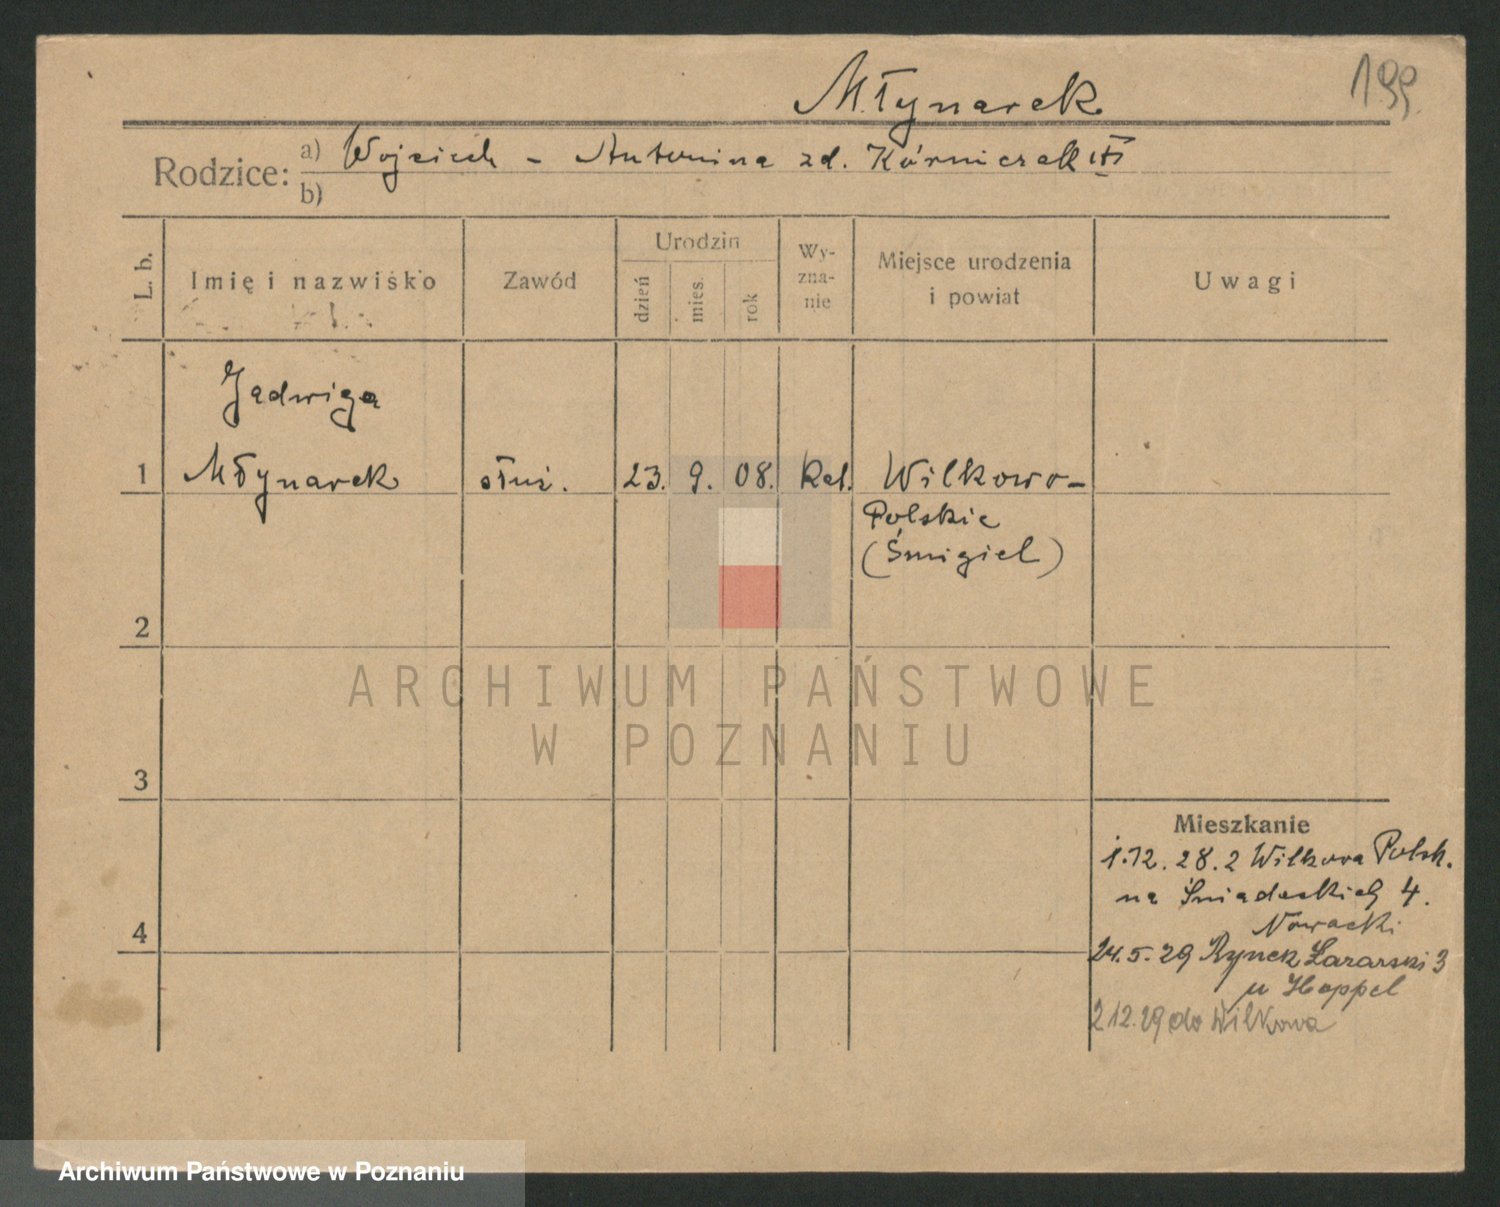 Młynarek
199
Rodzice: a) Wojciech - Antonina zd. Kórniczak
b)
L. b.
Imię i nazwisko
Zawód
Urodzin
dzień
mies.
rok
Wy-
zna-
nie
Miejsce urodzenia
i powiat
Uwagi
Jadwiga
1 Młynarek służ. 23. 9. 08. kat. Wilkowo-
Polskie
(Śmigiel)
2
3
4
Mieszkanie
1.12.28. z Wilkowa Polsk.
na Śniadeckich 4.
Nowacki
24.5.29 Rynek Łazarski 3
u Hoppel
2 12.29 do Wilkowa
ARCHIWUM PAŃSTWOWE
W POZNANIU
Archiwum Państwowe w Poznaniu